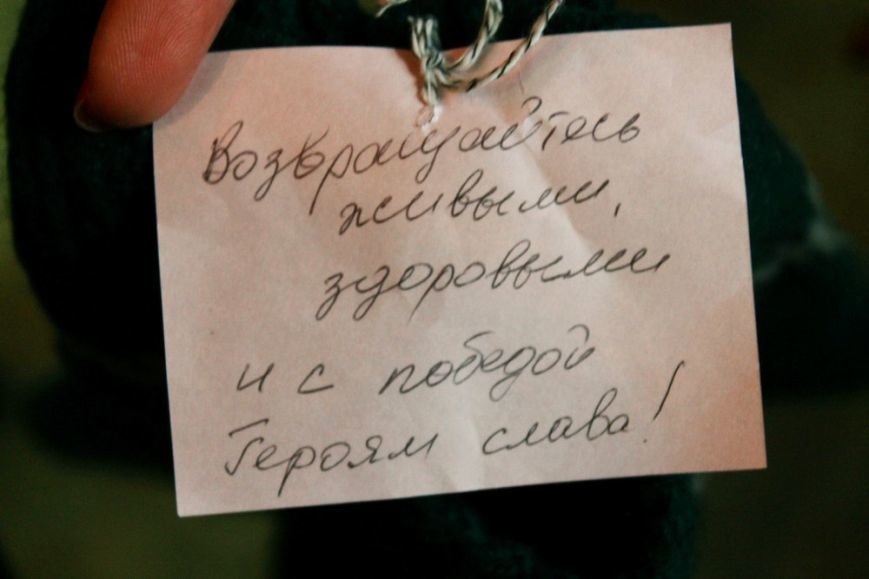 Возвращайтесь
живыми,
здоровыми
и с победой
Героям слава!